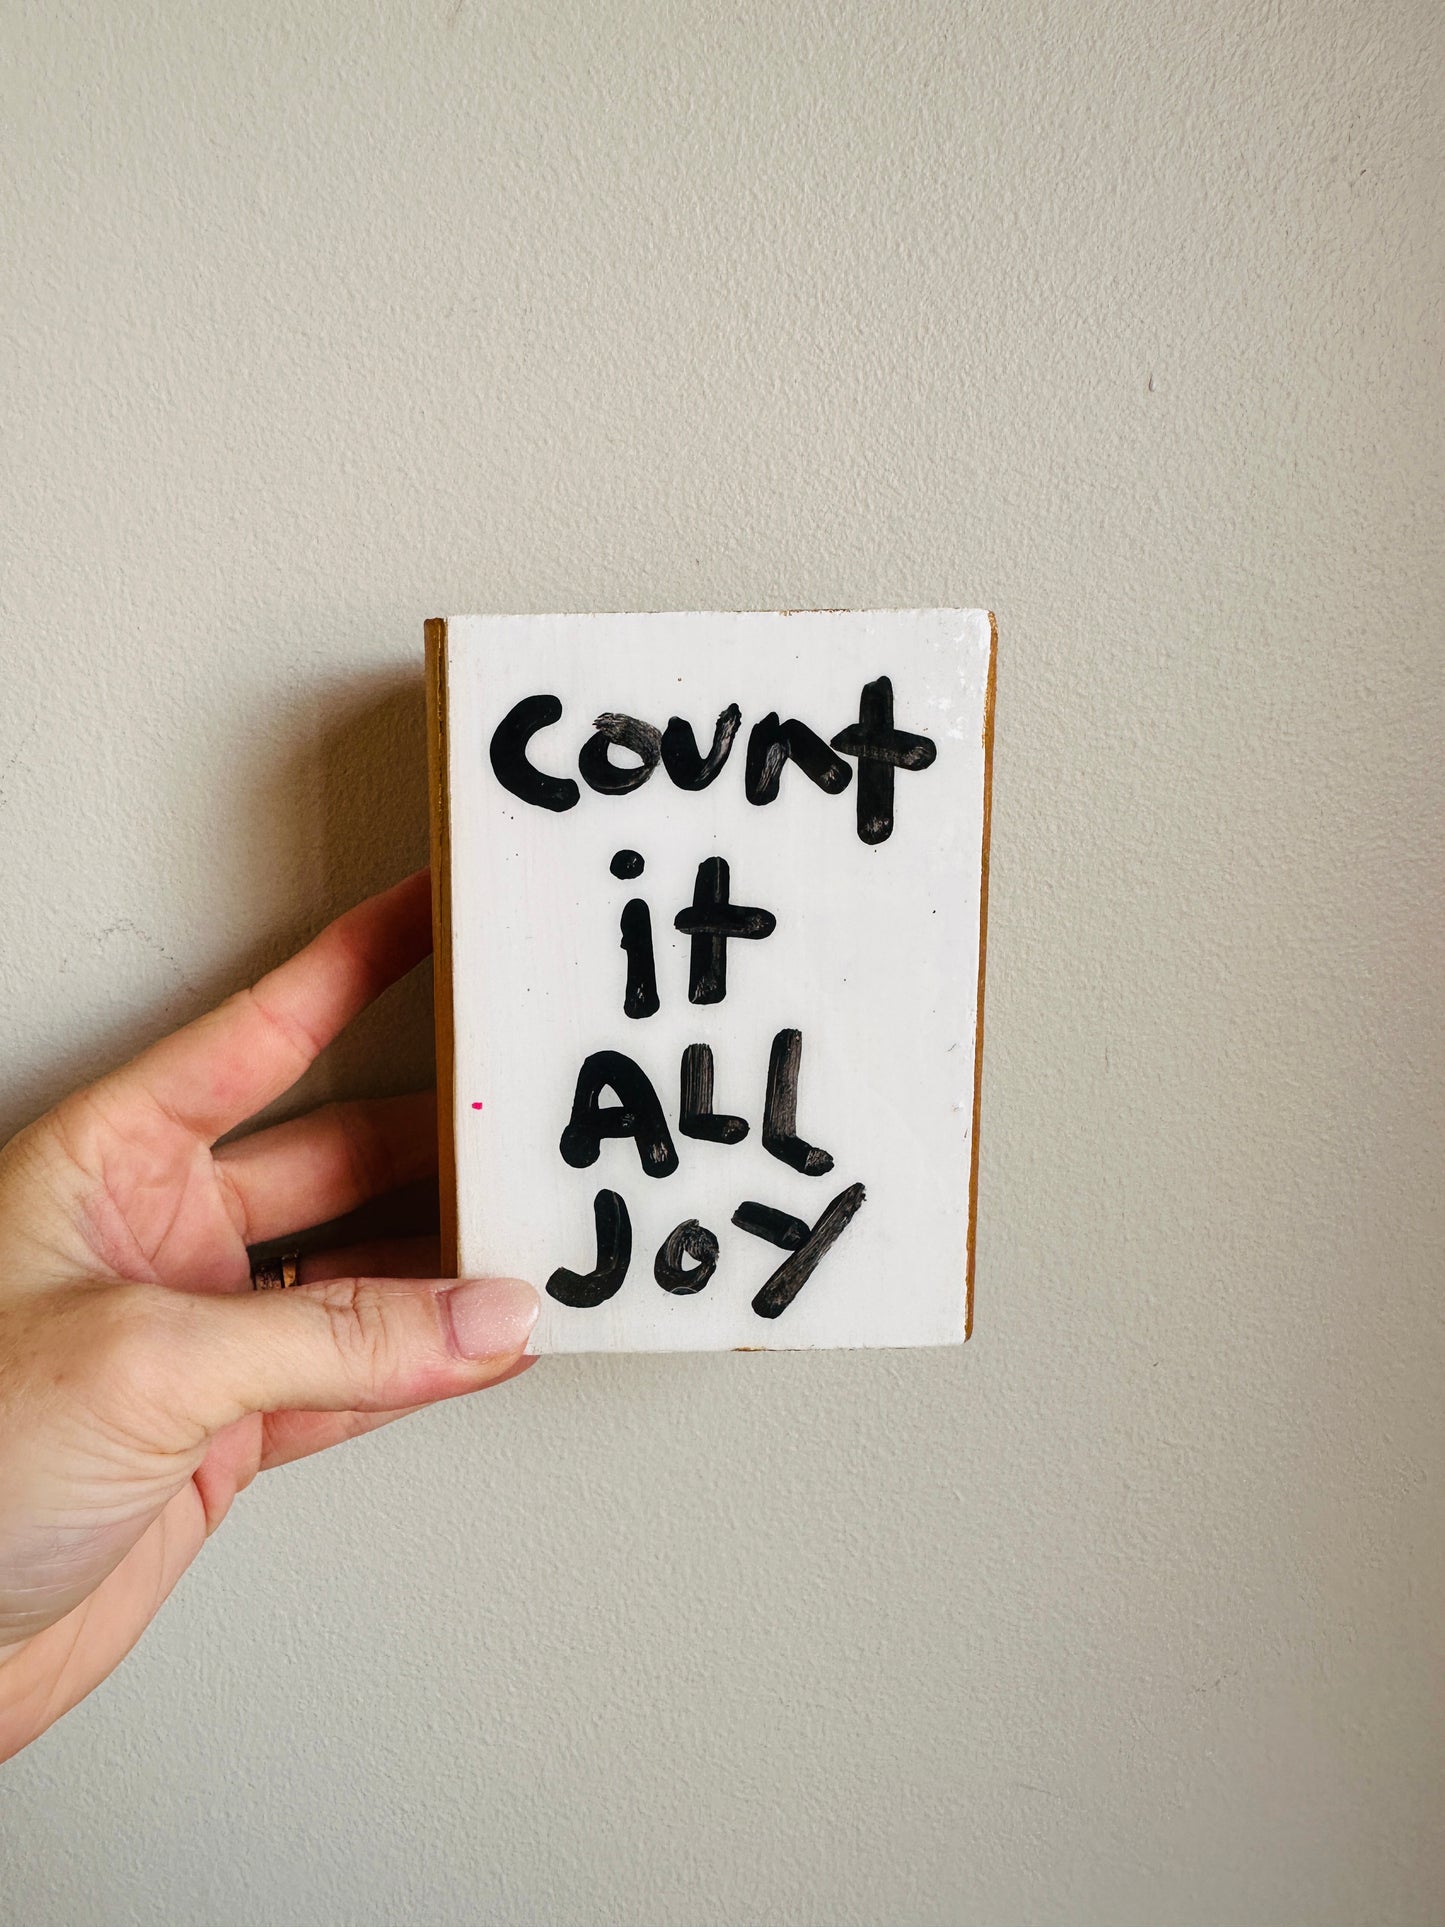 count
it
ALL
Joy